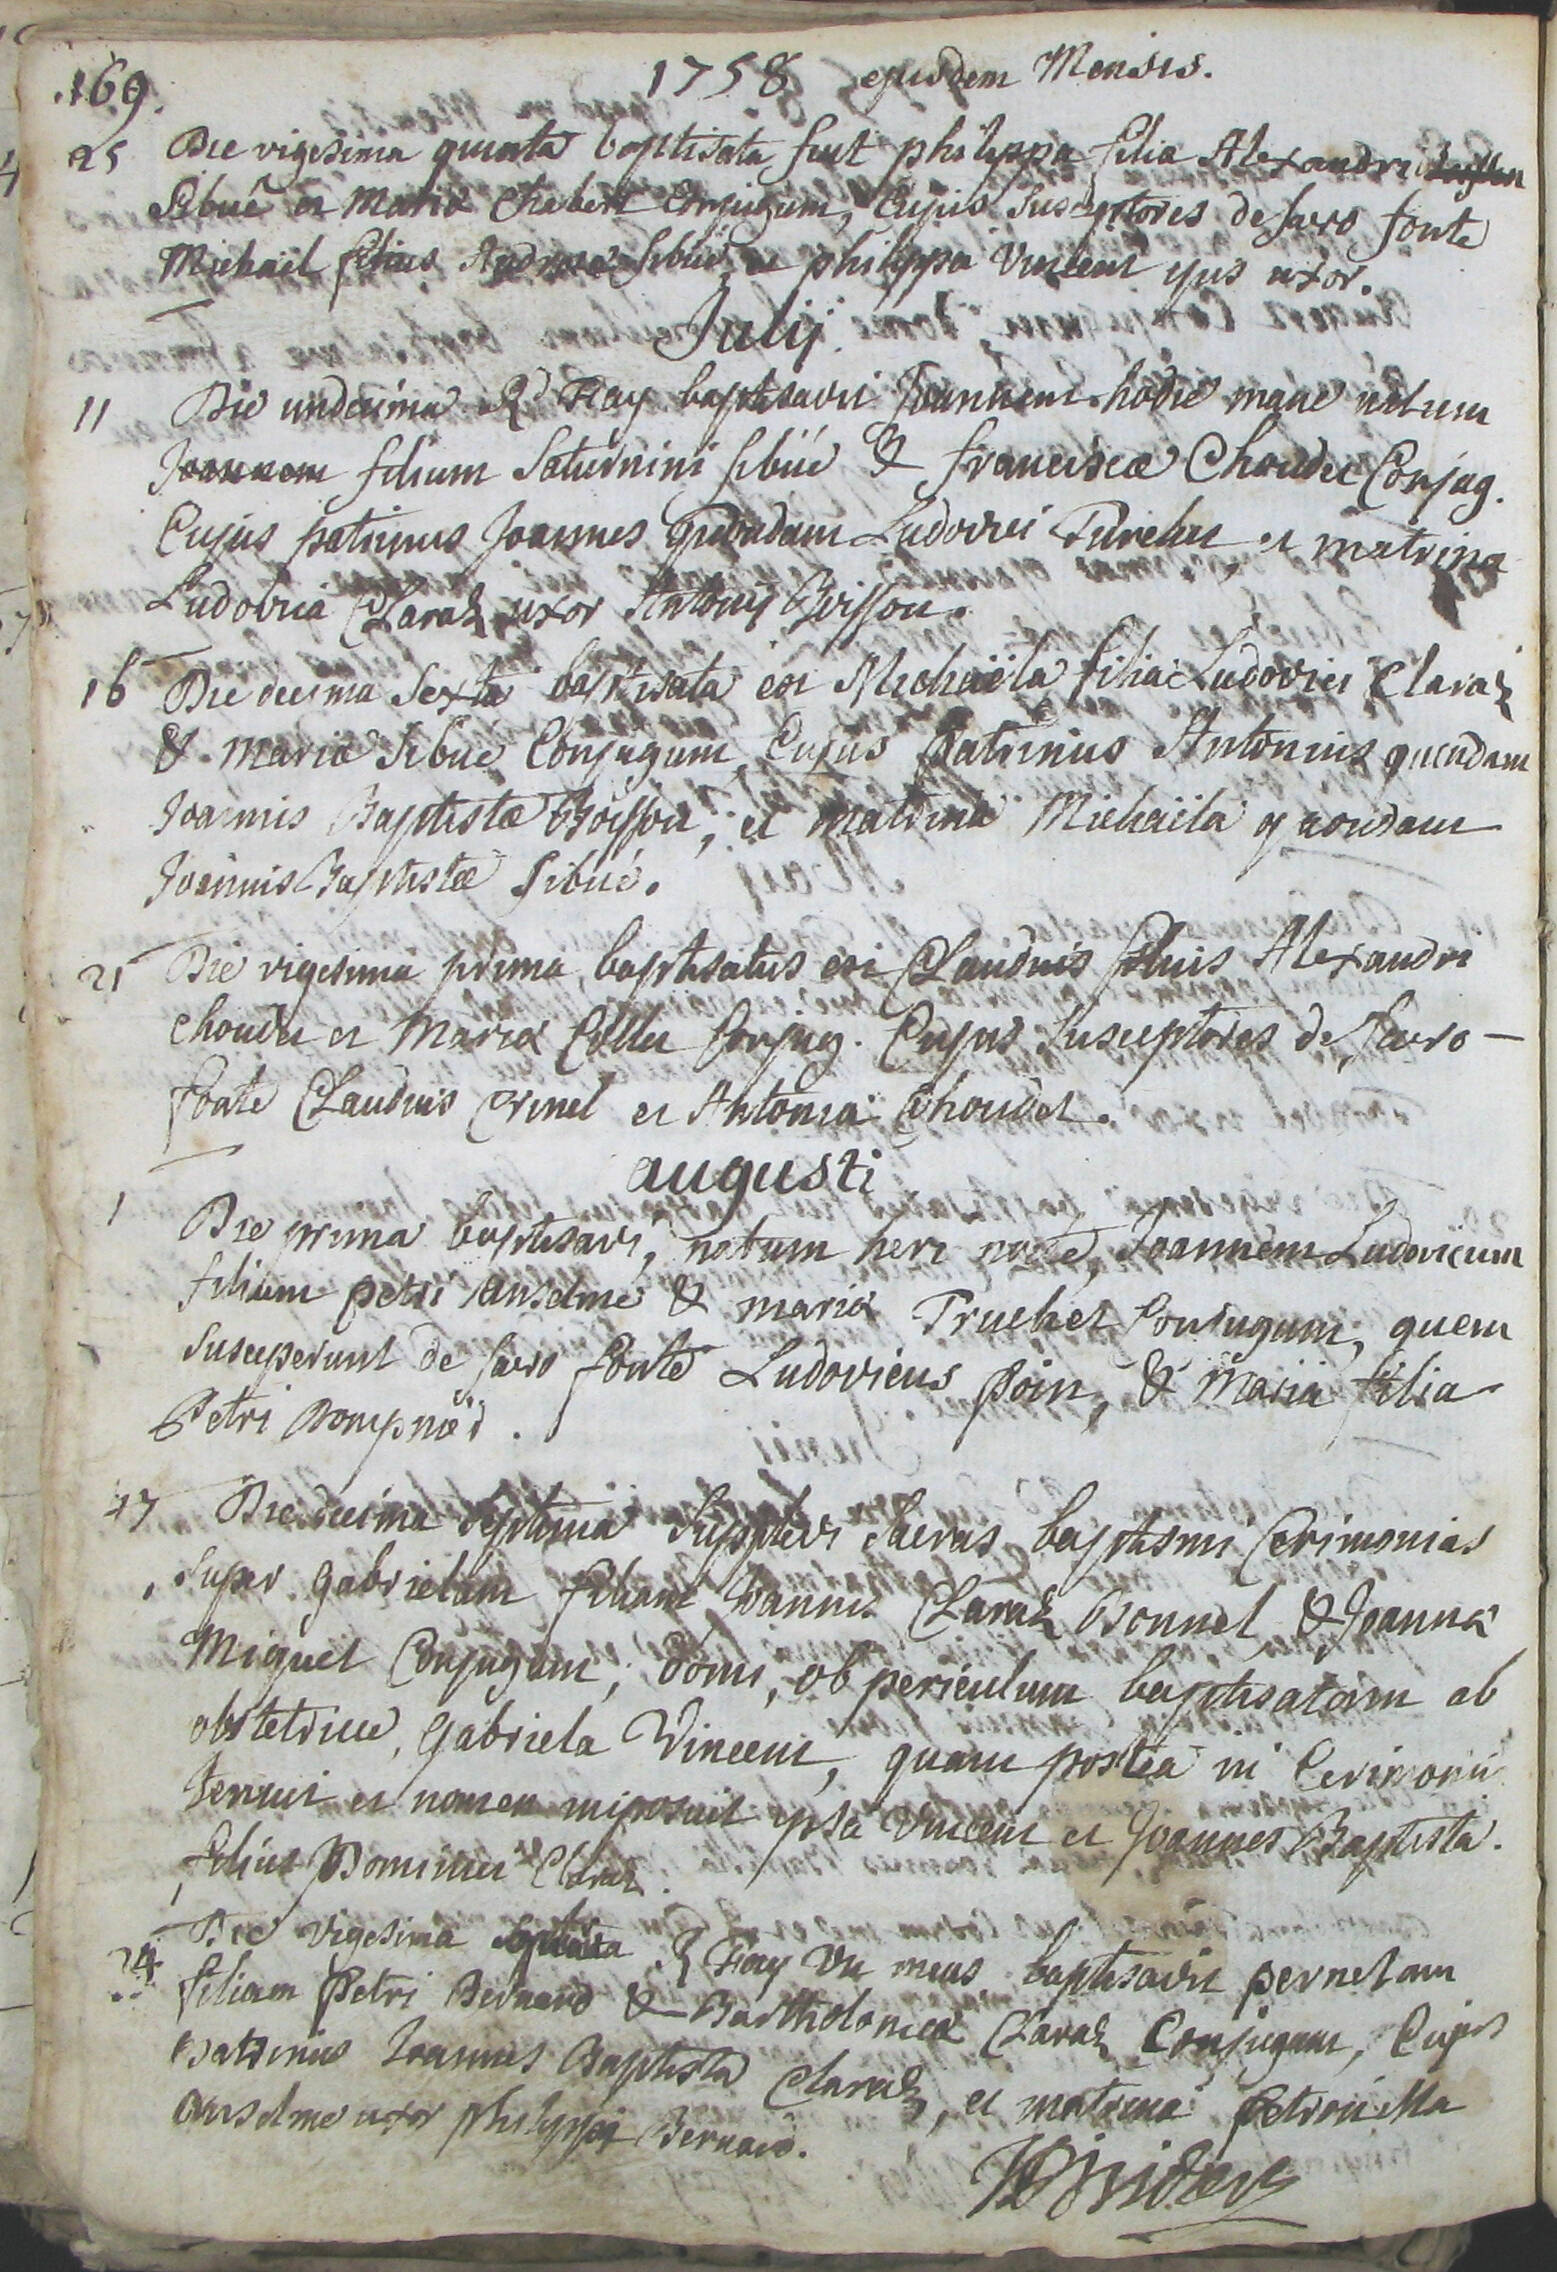 169.
1758 ejusdem Mensis.
25 Die vigesima quinta baptisata fuit philippa filia Alexandri
Sibué et Mariæ Chebert Conjugum, Cujus Susceptores de sacro fonte
Michaël filius Andreæ Sibué, et philippa Vincent ejus uxor.
Julij.
11 Die undecima Rd Fay baptisavit Joannem hodie mane natum
Joannem filium Saturnini sibué & franciscæ Choudet Conjug.
Cujus patrinus Joannes quondam Ludovici Truchet, et matrina
Ludovica Claraz uxor Antonij Boisson.
16 Die decima Sexta baptisata est Michaëla filia Ludovici Claraz
& Mariæ Sibué Conjugum, Cujus patrinus Antonius quondam
Joannis Baptistæ Boisson, et matrina Michaëla quondam
Joannis Baptistæ sibué.
21 Die vigesima prima, baptisatus est Claudius filius Alexandri
Choudet et Mariæ Collet Conjug. Cujus Susceptores de Sacro –
fonte Claudius Crinel et Antonia Choudet.
augusti
1 Die prima baptisavi, natum heri nocte, Joannem Ludovicum
filium petri anselme & mariæ Truchet Conjugum, quem
Susceperunt de sacro fonte Ludovicus poin, & Maria filia
Petri
17 Die decima Septima Supplevi Sacras baptismi Cerimonias
Super gabrielam filiam Joannis Claraz Bonnel & Joannæ
Miquel Conjugum, domi, ob periculum baptisatam ab
obstetrice, gabriela Vincent, quam postea in Cerimonii
tenuit et nomen imposuit ipsa Vincent et Joannes Baptista
filius Dominici Claraz.
24 Die vigesima R Fay baptisavit pernetam
filiam Petri Bernard & Bartholomeæ Claraz Conjugum, Cujus
patrinus Joannes Baptista Claraz, et matrina petronilla
anselme uxor philippi Bernard.